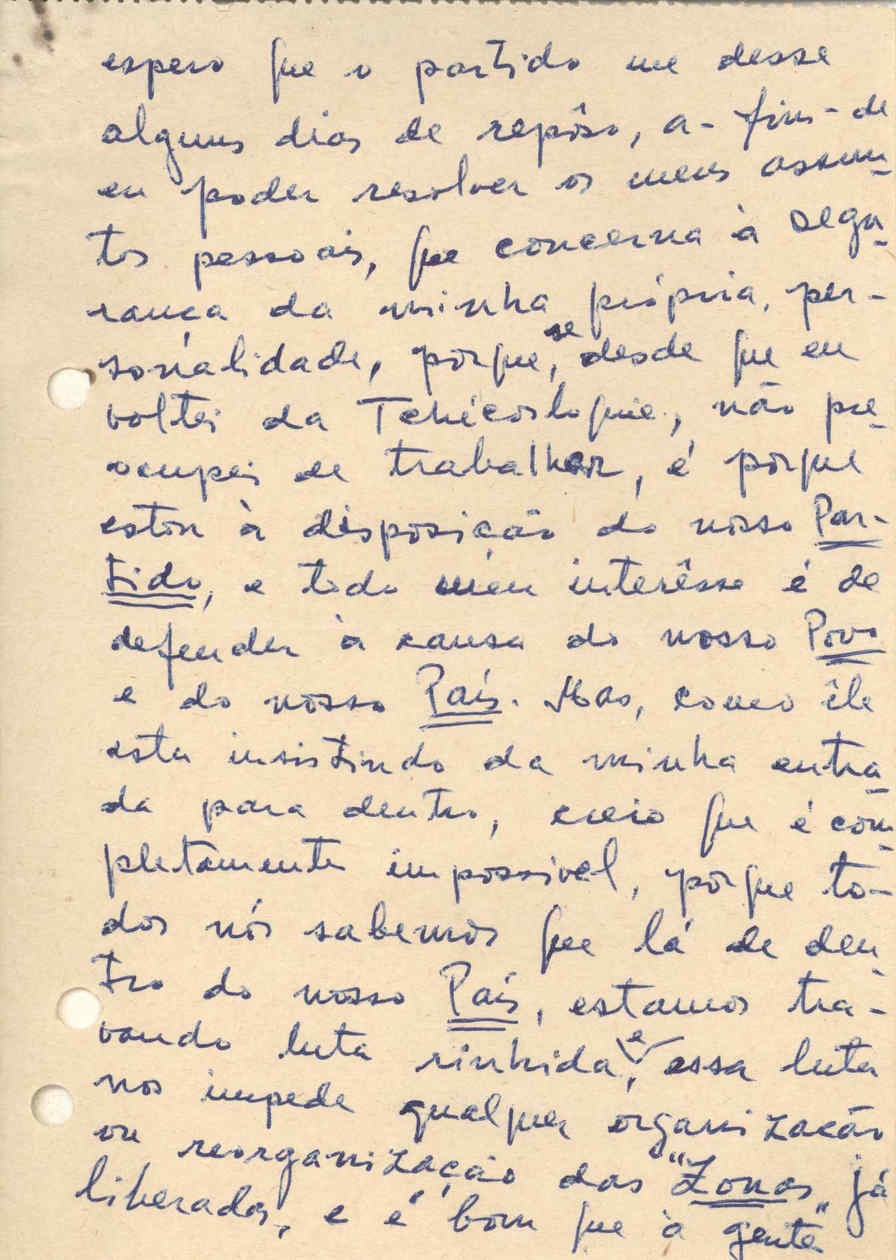 espero que o partido me desse
alguns dias de repôso, a-fim-de
eu poder resolver os meus assun-
tos pessoais, que concerna à segu-
rança da minha própria, per-
sonalidade, porque, se desde que eu
voltei da Tchécosloquie, não pre-
ocupei de trabalhar, é porque
estou à disposição do nosso Par-
tido, e todo meu interêsse é de
defender à causa do nosso Povo
e do nosso País. Mas, como êle
esta insistindo da minha entra-
da para dentro, creio que é com-
pletamente impossivel, porque to-
dos nós sabemos que lá de den-
tro do nosso País, estamos tra-
vando luta rinhida, e essa luta
nos impede qualquer organização
ou reorganização das "Zonas" já
liberadas, e é bom que à gente